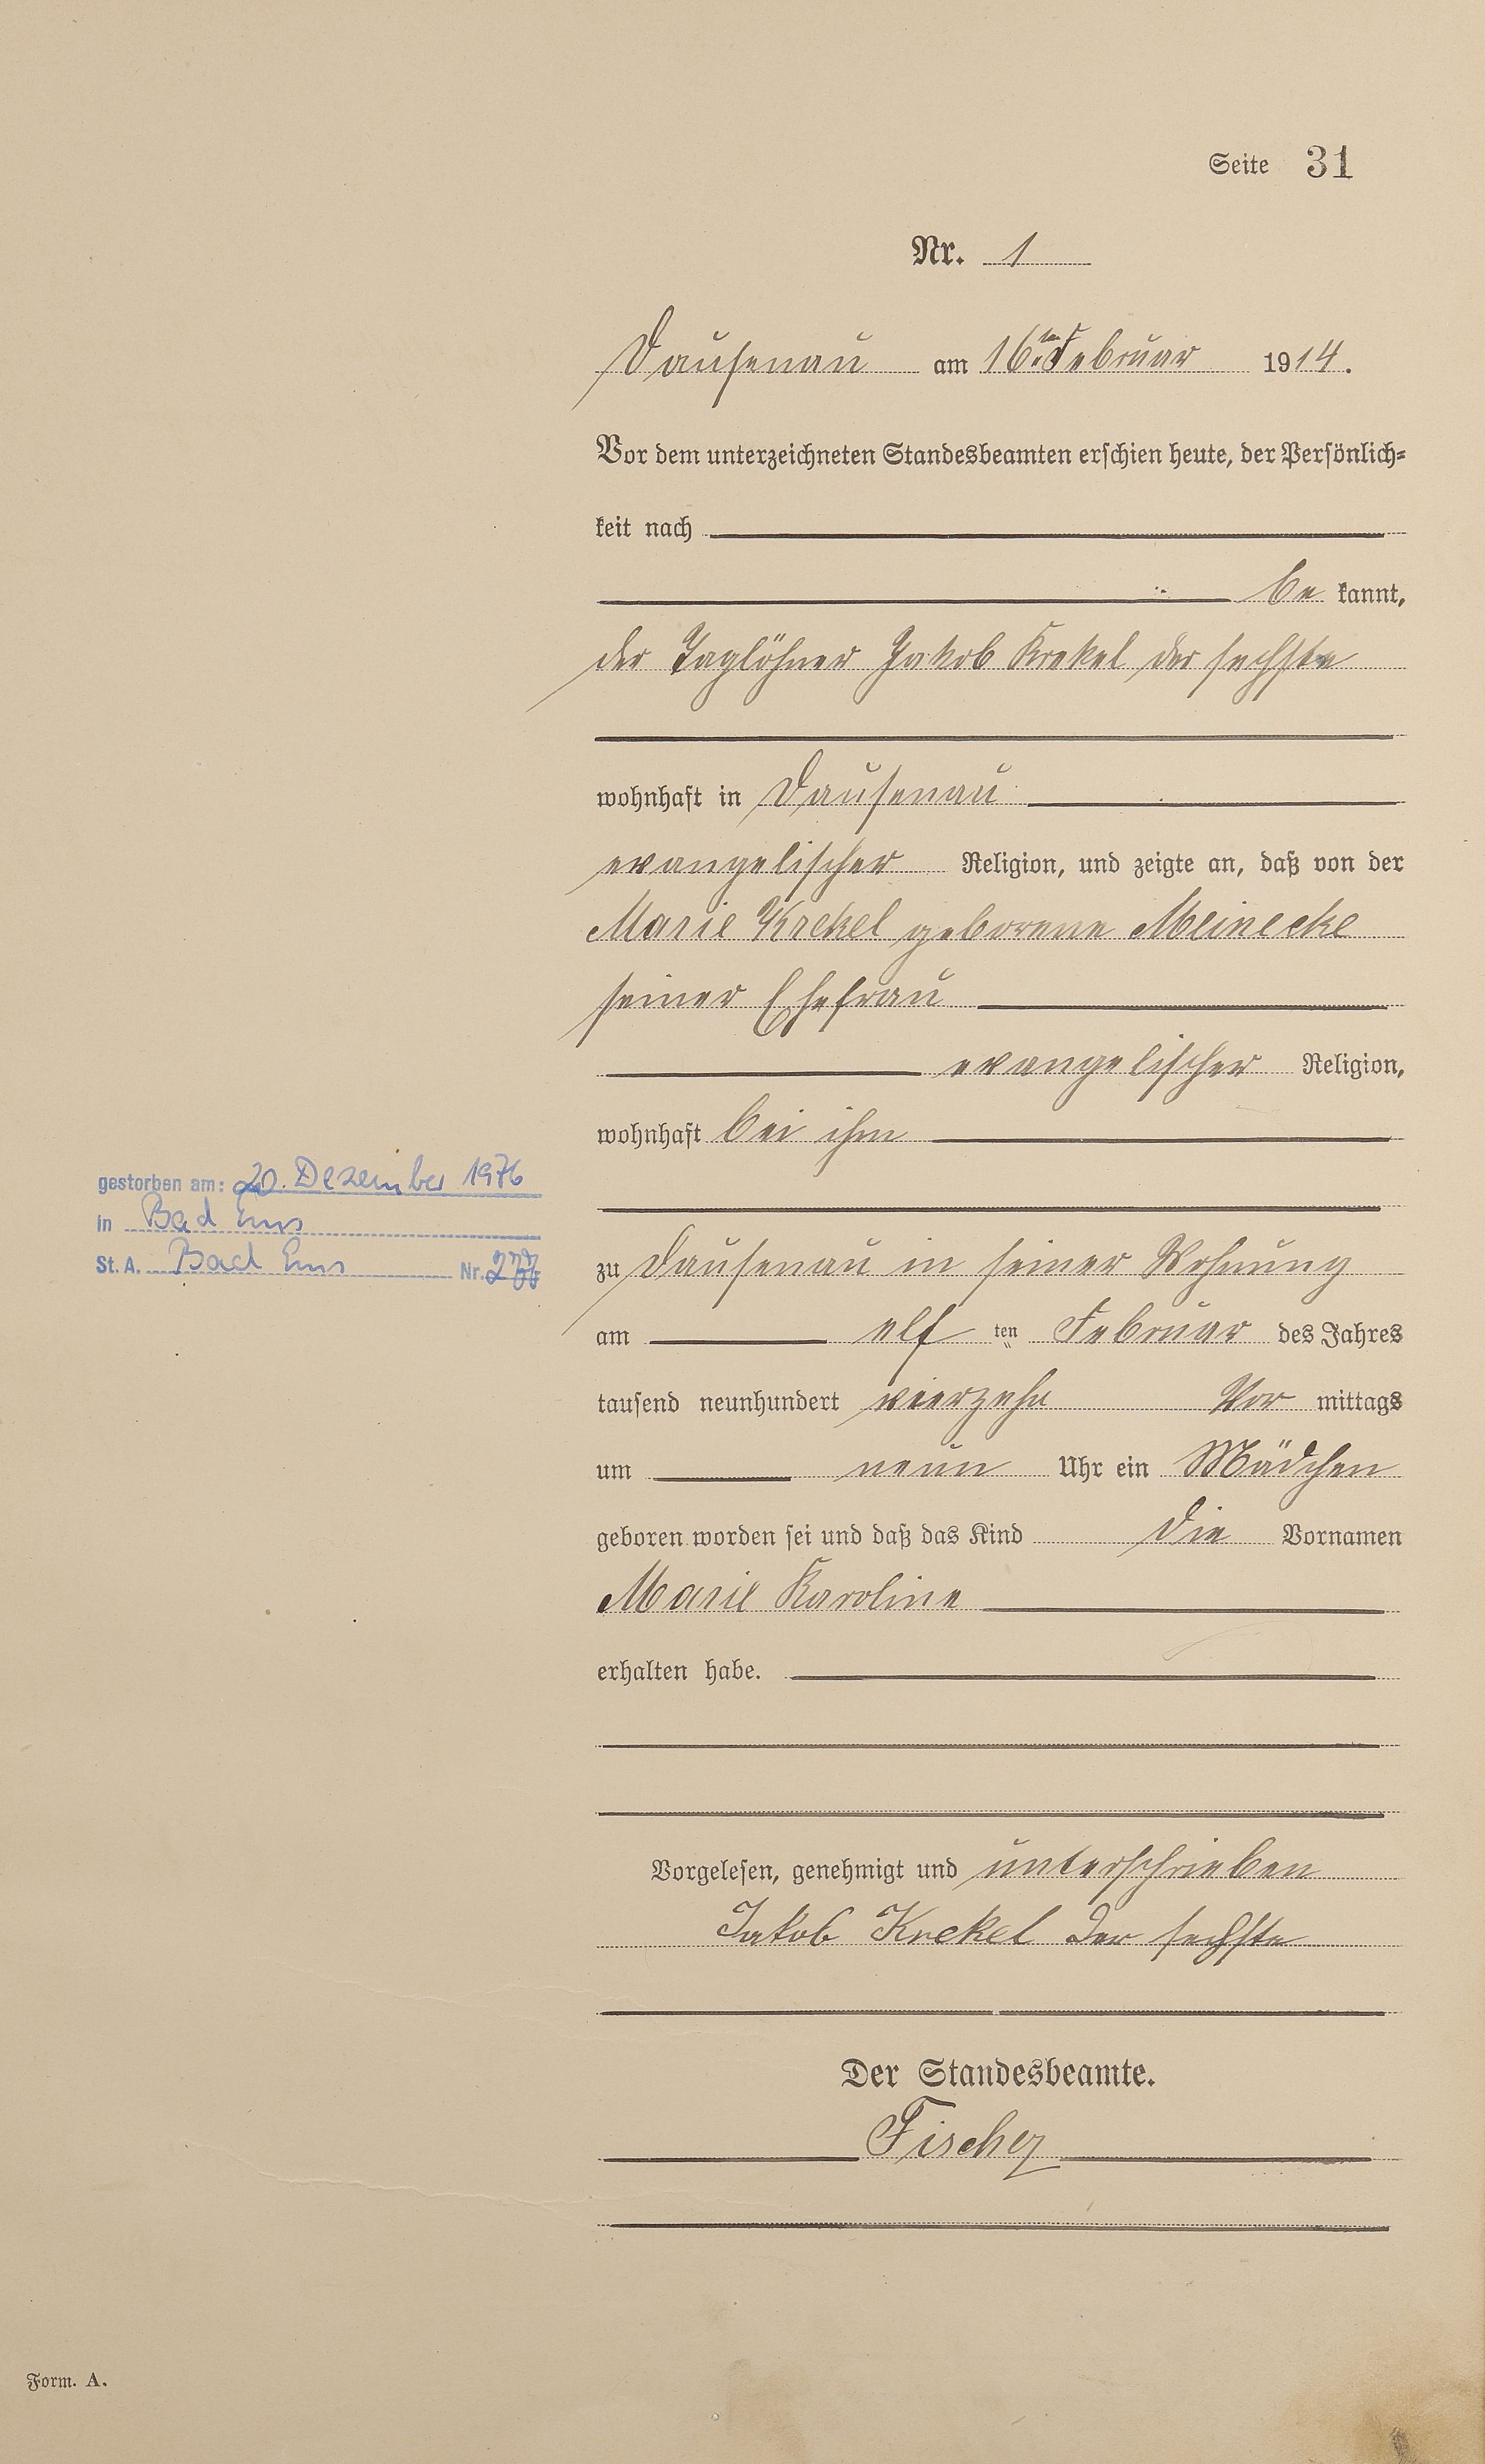 Seite 31
Nr. 1
Dausenau am 16.ten Februar 1914.
Vor dem unterzeichneten Standesbeamten erschien heute, der Persönlich=
keit nach
be kannt,
der Taglöhner Jakob Krekel der sechste
wohnhaft in Dausenau
evangelischer Religion, und zeigte an, daß von der
Marie Krekel geborene Meinecke
seiner Ehefrau
evangelischer Religion,
wohnhaft bei ihm
gestorben am: 20. Dezember 1976
in Bad Ems
St. A. Bad Ems Nr.
zu Dausenau in seiner Wohnung
am elf ten Februar des Jahres
tausend neunhundert vierzehn Vor mittags
um neun Uhr ein Mädchen
geboren worden sei und daß das Kind die Vornamen
Marie Karoline
erhalten habe.
Vorgelesen, genehmigt und unterschrieben
Jakob Krekel der sechste
Der Standesbeamte.
Fischer
Form. A.